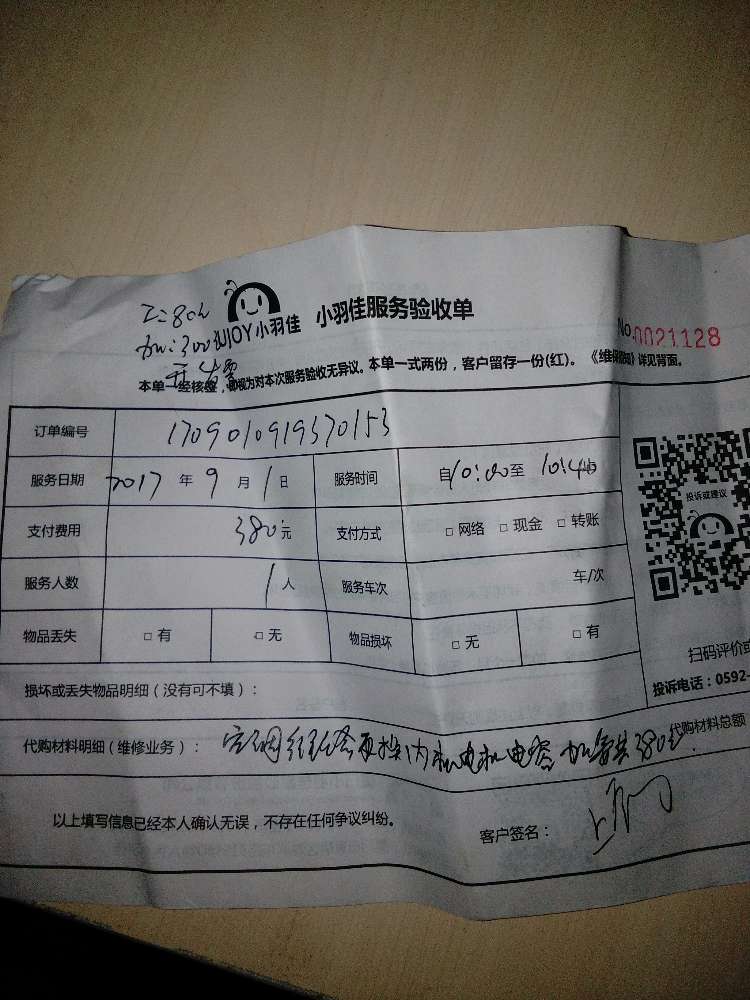 小羽佳服务验收单
UJOY小羽佳
No.0021128
本单一经核签，即视为对本次服务验收无异议。本单一式两份，客户留存一份(红)。《维修须知》详见背面。
订单编号 1709010919370153
服务日期 2017 年 9 月 1 日 服务时间 自10:00至 10:40
支付费用 380元 支付方式 □ 网络 □ 现金 □ 转账
投诉或建议
服务人数 1 人 服务车次 车/次
物品丢失 □ 有 □ 无 物品损坏 □ 无 □ 有
扫码评价或
投诉电话：0592-
损坏或丢失物品明细（没有可不填）：
代购材料明细（维修业务）： 空调 换内机电机电容 加 380元 代购材料总额
以上填写信息已经本人确认无误，不存在任何争议纠纷。
客户签名：